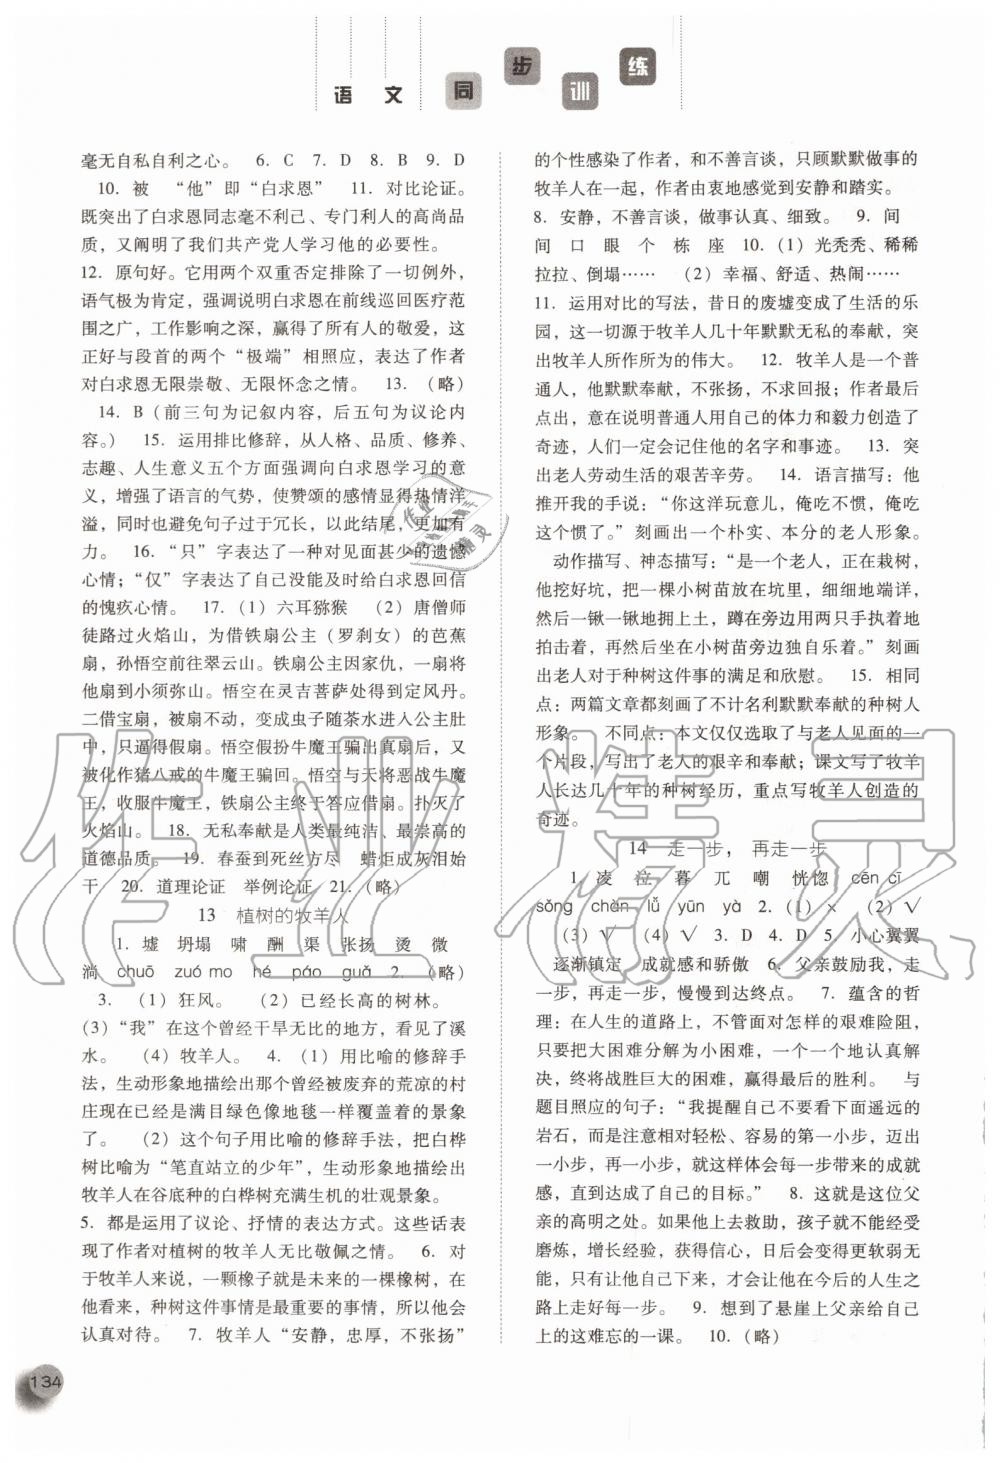 语文同步训练
毫无自私自利之心。 6. C 7. D 8. B 9. D
10. 被 “他”即“白求恩” 11. 对比论证。
既突出了白求恩同志毫不利己、专门利人的高尚品
质，又阐明了我们共产党人学习他的必要性。
12. 原句好。它用两个双重否定排除了一切例外，
语气极为肯定，强调说明白求恩在前线巡回医疗范
围之广，工作影响之深，赢得了所有人的敬爱，这
正好与段首的两个“极端”相照应，表达了作者
对白求恩无限崇敬、无限怀念之情。 13. (略)
14. B(前三句为记叙内容，后五句为议论内
容。) 15. 运用排比修辞，从人格、品质、修养、
志趣、人生意义五个方面强调向白求恩学习的意
义，增强了语言的气势，使赞颂的感情显得热情洋
溢，同时也避免句子过于冗长，以此结尾，更加有
力。 16. “只”字表达了一种对见面甚少的遗憾
心情；“仅”字表达了自己没能及时给白求恩回信
的愧疚心情。 17. (1) 六耳猕猴 (2) 唐僧师
徒路过火焰山，为借铁扇公主(罗刹女)的芭蕉
扇，孙悟空前往翠云山。铁扇公主因家仇，一扇
将悟空扇到小须弥山。悟空在灵吉菩萨处得到定风丹。
二借宝扇，被扇不动，变成虫子随茶水进入公主肚
中，只逼得假扇。悟空假扮牛魔王骗出真扇后，又
被化作猪八戒的牛魔王骗回。悟空与天将恶战牛魔
王，收服牛魔王，铁扇公主终于答应借扇。扑灭了
火焰山。 18. 无私奉献是人类最纯洁、最崇高的
道德品质。 19. 春蚕到死丝方尽 蜡炬成灰泪始
干 20. 道理论证 举例论证 21. (略)
13 植树的牧羊人
1. 墟 坍塌 啸 酬 渠 张扬 烫 微
淌 chuō zuó mo hé páo guǎ 2. (略)
3. (1) 狂风。 (2) 已经长高的树林。
(3) “我”在这个曾经干旱无比的地方，看见了溪
水。 (4) 牧羊人。 4. (1) 用比喻的修辞手
法，生动形象地描绘出那个曾经被废弃的荒凉的村
庄现在已经是满目绿色像地毯一样覆盖着的景象
了。 (2) 这个句子用比喻的修辞手法，把白桦
树比喻为“笔直站立的少年”，生动形象地描绘出
牧羊人在谷底种的白桦树充满生机的壮观景象。
5. 都是运用了议论、抒情的表达方式。这些话表
现了作者对植树的牧羊人无比敬佩之情。 6. 对
于牧羊人来说，一颗橡子就是未来的一棵橡树，在
他看来，种树这件事情是最重要的事情，所以他会
认真对待。 7. 牧羊人“安静，忠厚，不张扬”
的个性感染了作者，和不善言谈，只顾默默做事的
牧羊人在一起，作者由衷地感觉到安静和踏实。
8. 安静，不善言谈，做事认真、细致。 9. 间
间 口 眼 个 栋 座 10. (1) 光秃秃、稀稀
拉拉、倒塌…… (2) 幸福、舒适、热闹……
11. 运用对比的写法，昔日的废墟变成了生活的乐
园，这一切源于牧羊人几十年默默无私的奉献，突
出牧羊人所作所为的伟大。 12. 牧羊人是一个普
通人，他默默奉献，不张扬，不求回报；作者最后
点出，意在说明普通人用自己的体力和毅力创造了
奇迹，人们一定会记住他的名字和事迹。 13. 突
出老人劳动生活的艰苦辛劳。 14. 语言描写：他
推开我的手说：“你这洋玩意儿，俺吃不惯，俺吃
这个惯了。”刻画出一个朴实、本分的老人形象。
动作描写、神态描写：“是一个老人，正在栽树，
他挖好坑，把一棵小树苗放在坑里，细细地端详，
然后一锹一锹地拥上土，蹲在旁边用两只手执着地
拍实，再然后坐在小树苗边独自乐着。”刻画
出老人对于种树这件事的满足和欣慰。 15. 相同
点：两篇文章都刻画了不计名利默默奉献的种树人
形象。 不同点：本文仅仅选取了与老人见面的一
个片段，写出了老人的艰辛和奉献；课文写了牧羊
人长达几十年的种树经历，重点写牧羊人创造的
奇迹。
14 走一步，再走一步
1. 凌 泣 暮 兀 嘲 恍惚 cēn cī
sǒng chàn lǚ yūn yà 2. (1) × (2) √
(3) √ (4) √ 3. D 4. D 5. 小心翼翼
逐渐镇定 成就感和骄傲 6. 父亲鼓励我，走
一步，再走一步，慢慢到达终点。 7. 蕴含的哲
理：在人生的道路上，不管面对怎样的艰难险阻，
只要把大困难分解为小困难，一个一个地认真解
决，终将战胜巨大的困难，赢得最后的胜利。 与
题目照应的句子：“我提醒自己不要看下面遥远的
岩石，而是注意相对轻松、容易的第一小步，迈出
一小步，再一小步，就这样体会每一步带来的成就
感，直到达成了自己的目标。” 8. 这就是这位父
亲的高明之处。如果他上去救助，孩子就不能经受
磨炼，增长经验，获得信心，日后会变得更软弱无
能，只有让他自己下来，才会让他在今后的人生之
路上走好每一步。 9. 想到了悬崖上父亲给自己
上的这难忘的一课。 10. (略)
134
作业精灵